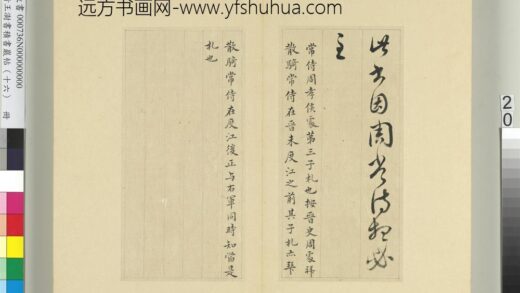 远方书画网-www.yfshuhua.com
此書因周常侍想必
至
常侍周孝侯處第三子札也按晉史周處拜
散騎常侍在晉未度江之前其子札亦拜
散騎常侍在度江後正与右軍同時知當是
札也
書 000736N000000000
王澍書積書巖帖（十六） 冊
20